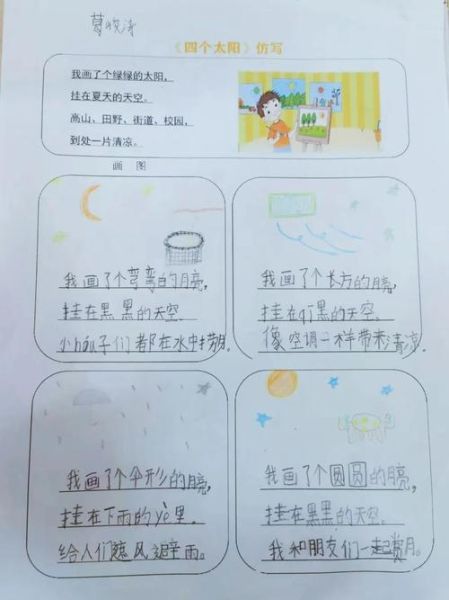 《四个太阳》仿写
我画了个绿绿的太阳，
挂在夏天的天空。
高山、田野、街道、校园，
到处一片清凉。
画 图
我画了个弯弯的月亮，
挂在黑黑的天空
小hóu子们都在水中捞月。
我画了个长方的月亮，
挂在qī黑的天空。
像空调一样带来清凉.
我画了个伞形的月亮，
挂在下雨的yè里。
给人们遮风避雨。
我画了个圆圆的月亮，
挂在黑黑的天空。
我和朋友们一起赏月。